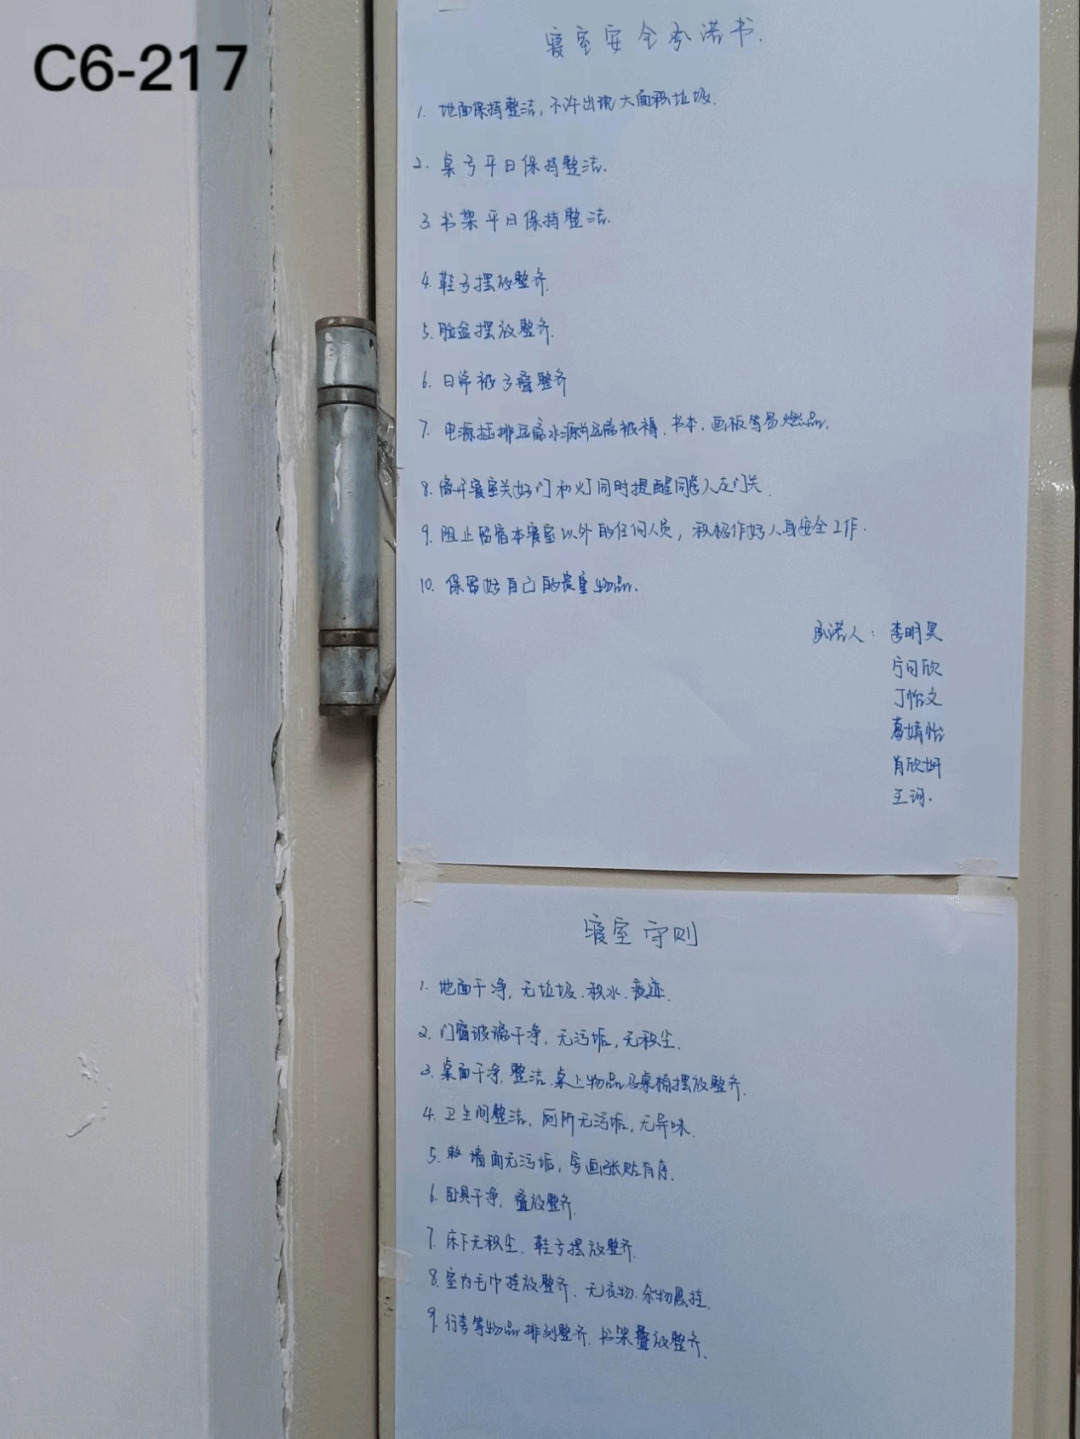 C6-217
寝室安全承诺书.
1. 地面保持整洁,不许出现大面积垃圾.
2. 桌子平日保持整洁.
3. 书架平日保持整洁.
4. 鞋子摆放整齐.
5. 脸盆摆放整齐.
6. 日常被子叠整齐
7. 电源插排远离水源并远离被褥、书本、画板等易燃品.
8. 离开寝室关好门和灯同时提醒同学人走门关.
9. 阻止留宿本寝室以外的任何人员,积极作好人身安全工作.
10. 保留好自己的贵重物品.
承诺人: 李明昊
欣
丁怡文
葛婧怡
肖欣妍
王诃.
寝室守则
1. 地面干净,无垃圾、积水、痰迹.
2. 门窗玻璃干净,无污垢,无积尘.
3. 桌面干净,整洁.桌上物品及桌椅摆放整齐.
4. 卫生间整洁,厕所无污垢,无异味.
5. 墙面无污垢,字画张贴有序.
6. 卧具干净,叠放整齐.
7. 床下无积尘,鞋子摆放整齐.
8. 室内毛巾挂放整齐,无衣物、杂物悬挂.
9. 行李等物品排列整齐.书架叠放整齐.